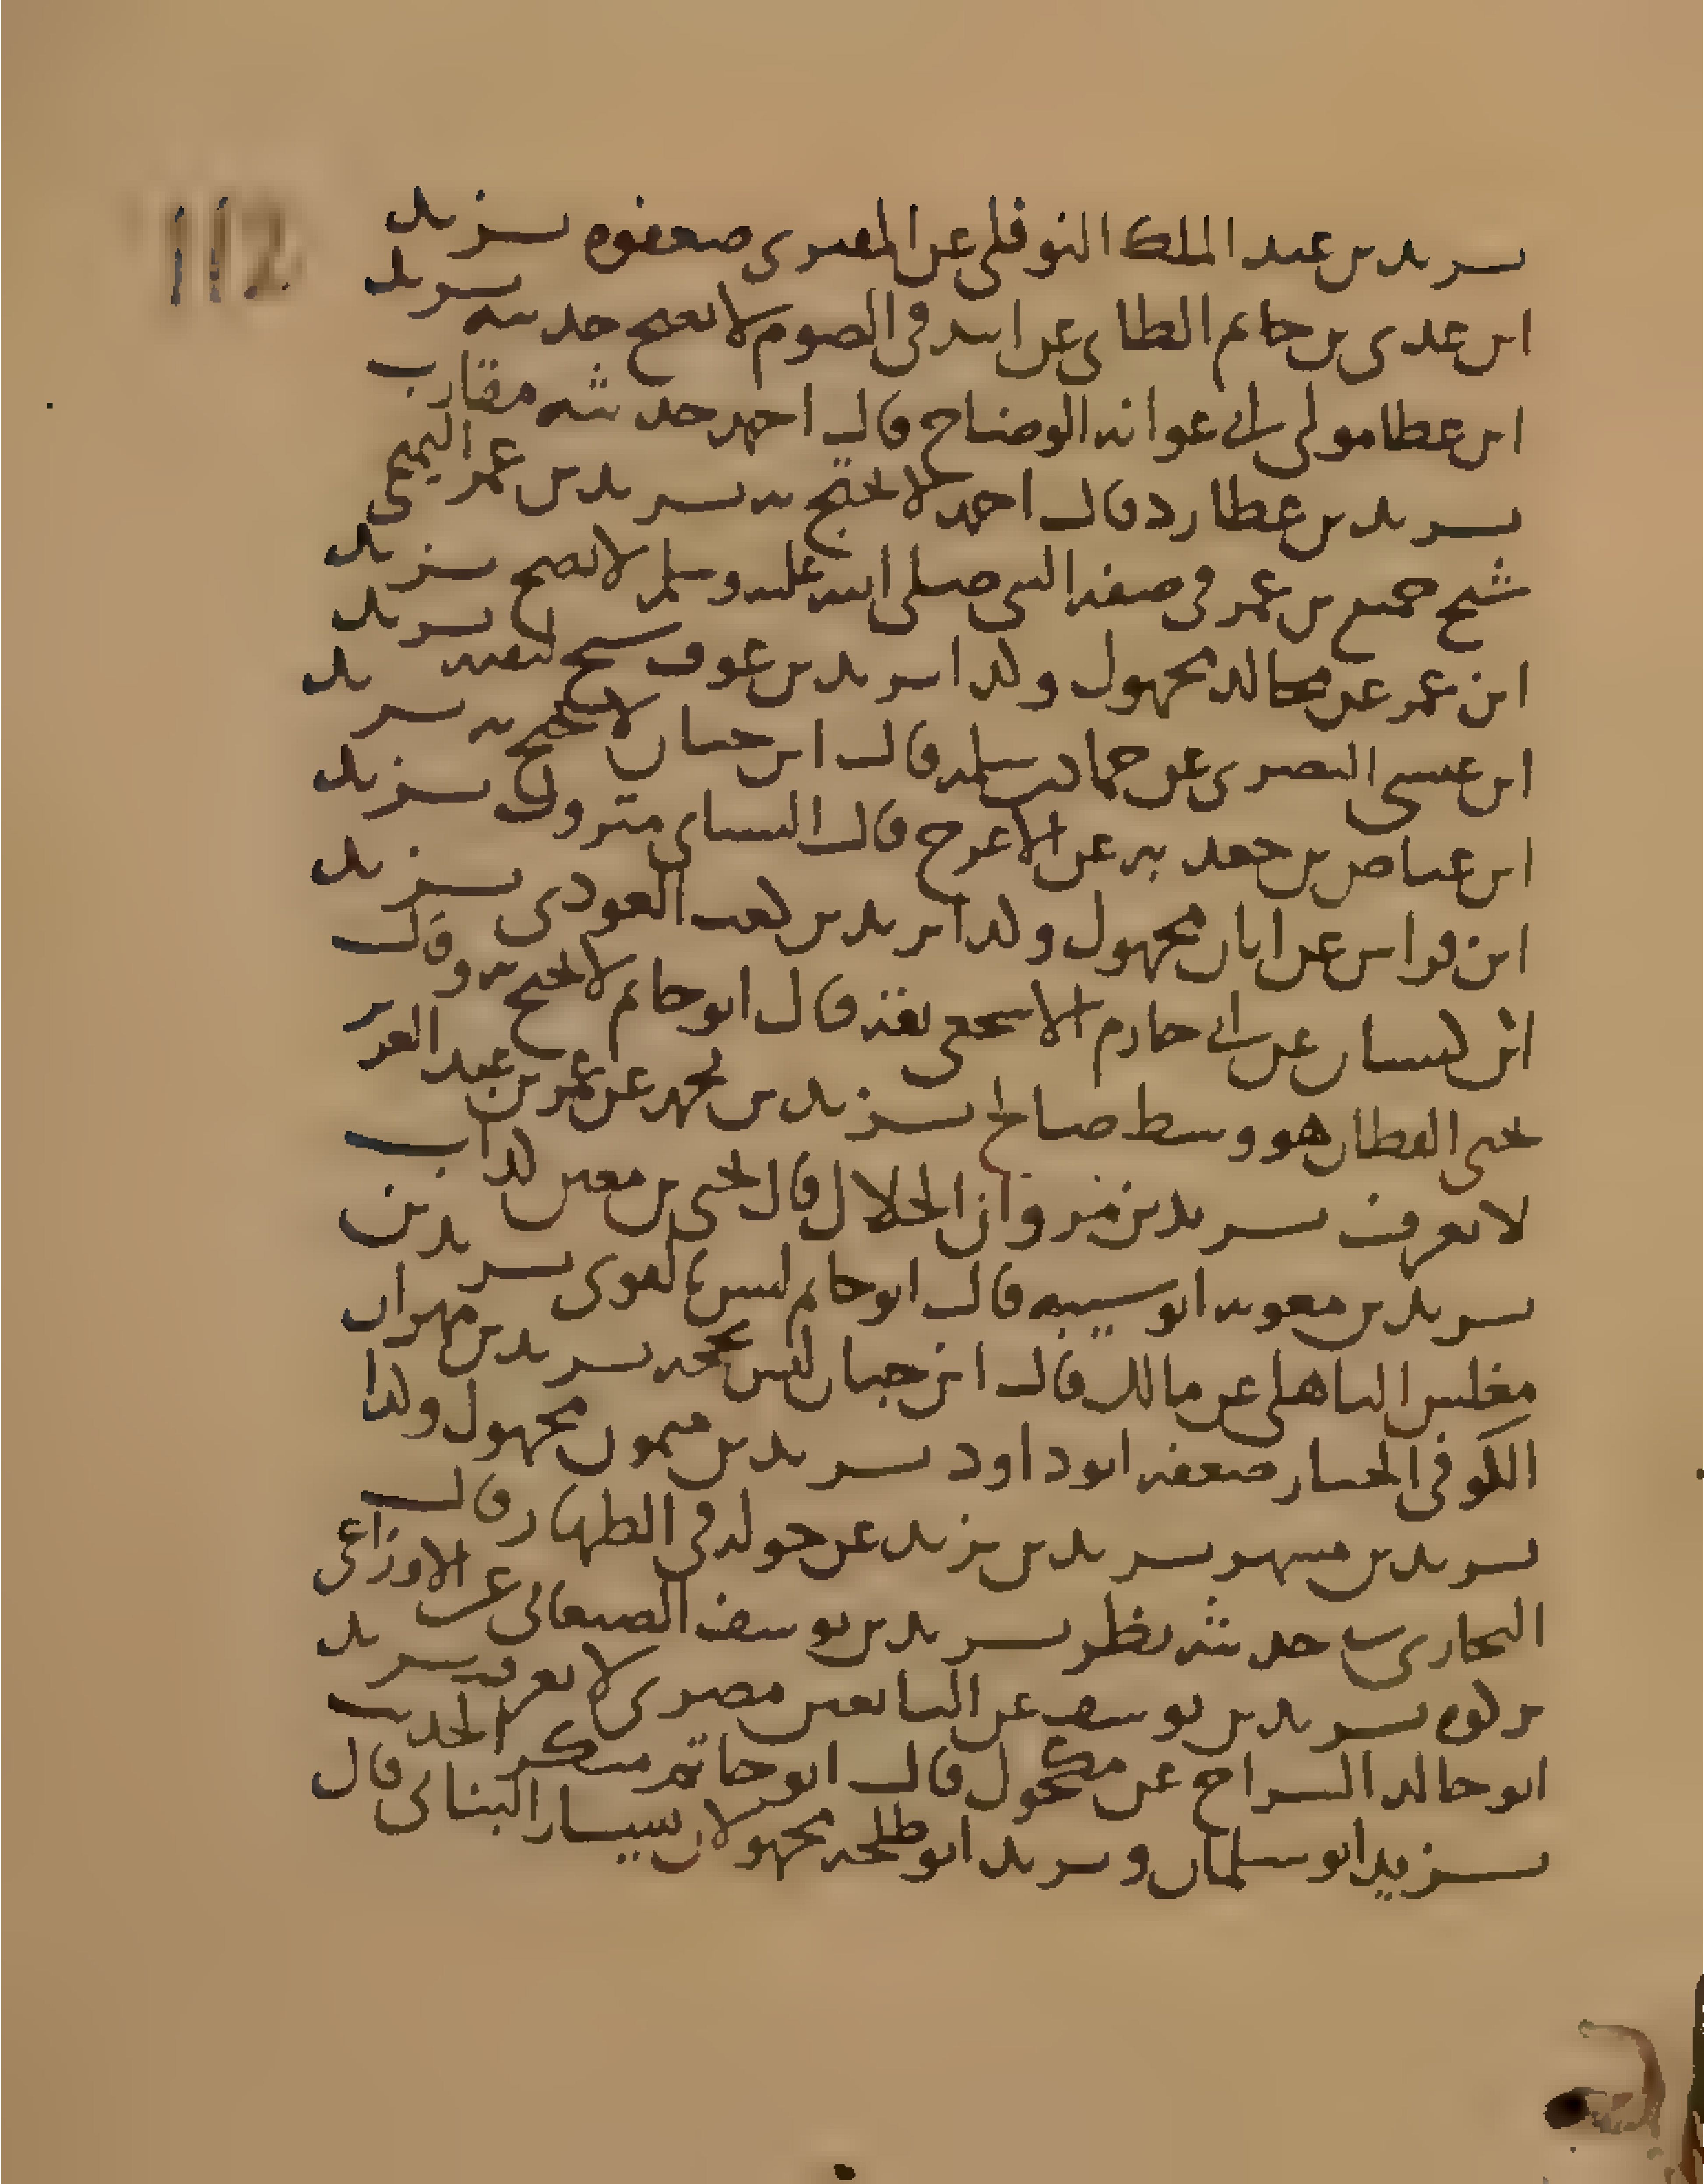 112
يزيد بن عبد الملك النوفلي عن المقبري ضعفوه يزيد
ابن عدي بن حاتم الطائي عن ابيه في الصوم لا يصح حديثه يزيد
ابن عطا مولى ابي عوانه الوضاح قال احمد حديثه مقارب
يزيد بن عطارد قال احمد لا يحتج به يزيد بن عمر التميمي
شيخ جميع بن عمر في صفة النبي صلى الله عليه وسلم لا يصح يزيد
ابن عمر عن مجالد مجهول ولذا يزيد بن عوف شيخ لبقيه يزيد
ابن عيسى البصري عن حماد بن سلمه قال ابن حبان لا يحتج به يزيد
ابن عياض بن جعدبه عن الاعرج قال النساي متروك يزيد
ابن فراس عن ابان مجهول ولذا يزيد بن كعب العوذي يزيد
ابن كيسان عن ابي حازم الاشجعي ثقه قال ابو حاتم لا يحتج به وقال
يحيى القطان هو وسط صالح يزيد بن مجهر عن عمر بن عبد العزيز
لا يعرف يزيد بن مروان الخلال قال يحيى بن معين كذاب
يزيد بن معويه ابو شيبه قال ابو حاتم ليس بالقوي يزيد بن
مغلس الباهلي عن مالك قال ابن حبان ليس بحجه يزيد بن مهران
الكوفي الخباز ضعفه ابو داود يزيد بن ميمون مجهول ولذا
يزيد بن مسهر يزيد بن يزيد عن خوله في الطهار قال
البخاري في حديثه نظر يزيد بن يوسف الصنعاني عن الاوزاعي
تركوه يزيد بن يوسف عن التابعين مصري لا يعرف يزيد
ابو خالد السراج عن مكحول قال ابو حاتم منكر الحديث
يزيد ابو سلمان ويزيد ابو طلحه مجهولان يسار البناني قال